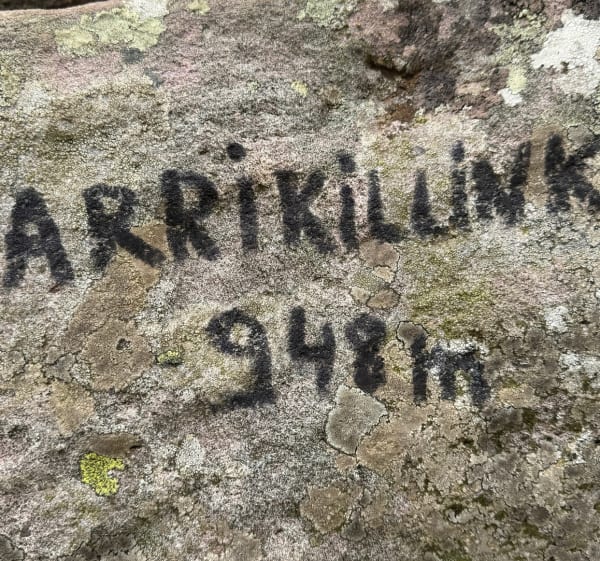 ARRiKiLLiNK
948 m